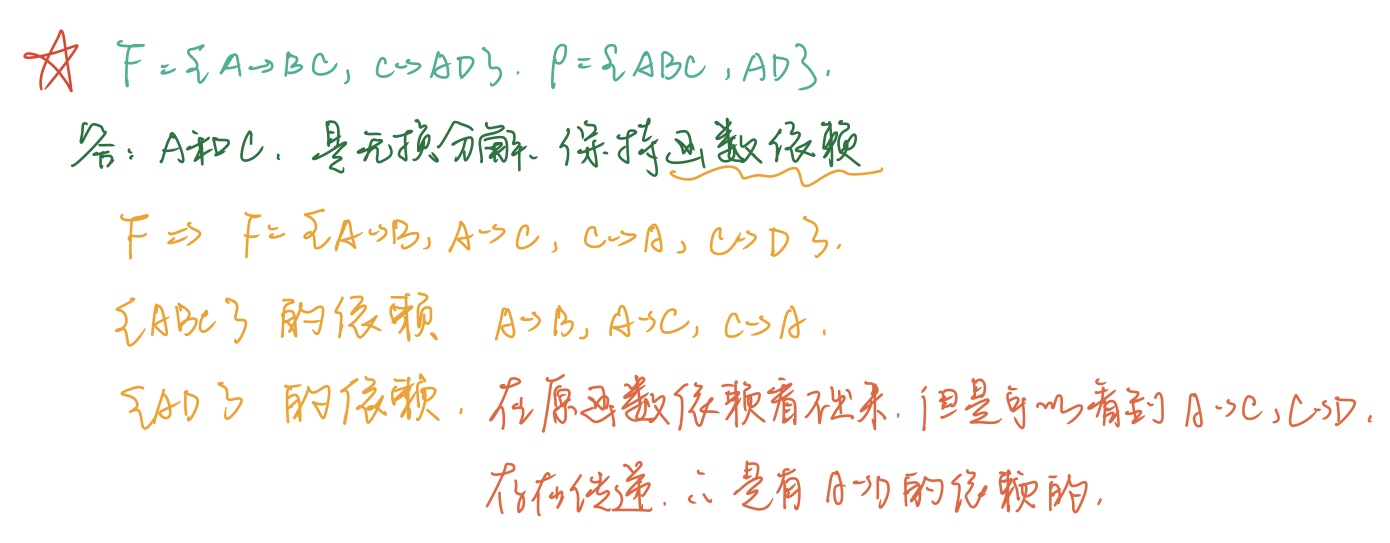 F={A→BC, C→AD}. ρ={ABC, AD}.
答: A和C. 是无损分解、保持函数依赖
F ⇒ F={A→B, A→C, C→A, C→D}.
{ABC} 的依赖 A→B, A→C, C→A.
{AD} 的依赖. 在原函数依赖看不出来. 但是可以看到 A→C, C→D.
存在传递. ∴ 是有 A→D 的依赖的.